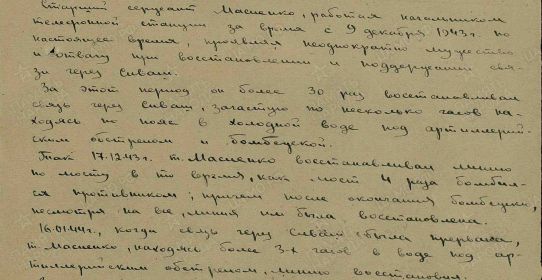 Старший сержант Масненко, работая начальником
телефонной станции за время с 9 декабря 1943г. по
настоящее время, проявил неоднократно мужество
и отвагу при восстановлении и поддержании свя-
зи через Сиваш.
За этот период он более 30 раз восстанавливал
связь через Сиваш, зачастую по несколько часов на-
ходясь по пояс в холодной воде под артиллерий-
ским обстрелом и бомбежкой.
Так 17.12.43г. т. Масненко восстанавливал линию
по мосту в то время, как мост 4 раза бомбил-
ся противником, причем после окончания бомбежки,
несмотря на все, линия им была восстановлена.
16.01.44г., когда связь через Сиваш была прервана,
т. Масненко, находясь более 3-х часов в воде под ар-
тиллерийским обстрелом, линию восстановил.